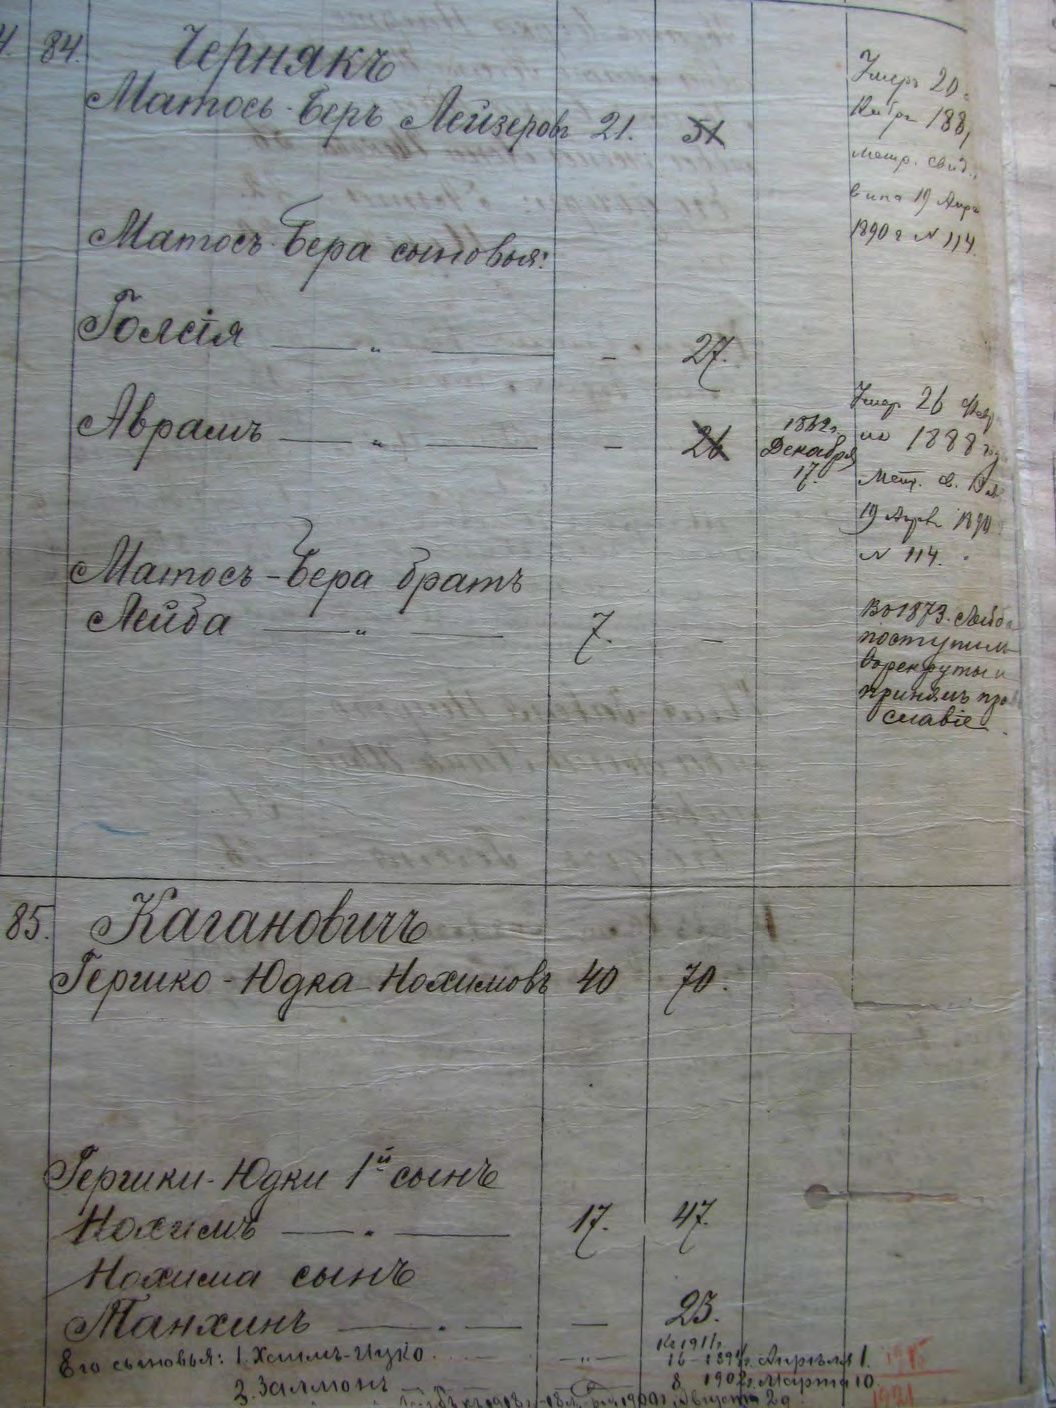 84. Чернякъ
Матось-Беръ Лейзеровъ 21. 51
Умеръ 20
188
метр. свид.
19 Апр
1890 г № 114.
Матосъ-Бера сыновья:
Голсія — „ — – 27.
Аврамъ — „ — – 26
1862 г.
Декабря
17.
Умер 26 Февр
1888 год
Метр. св.
19 Апрв 1890
№ 114.
Матосъ-Бера братъ
Лейба — „ — 7. —
Въ 1873. Лейба
поступилъ
в рекруты и
принялъ пра
славіе
85. Кагановичъ
Гершко-Юдка Нохимовъ 40 70.
Гершки-Юдки 1й сынъ
Нохимъ — „ — 17. 47.
Нохима сынъ
Танхинъ — „ — – 23.
Къ 1911 г.
Его сыновья: 1. Хаимъ-Ицко — „ — 16 - 1894 г. Апрѣля 1. 1915
2. Залмонъ 8 1902 г. Марта 10.
Августа 29. 1921